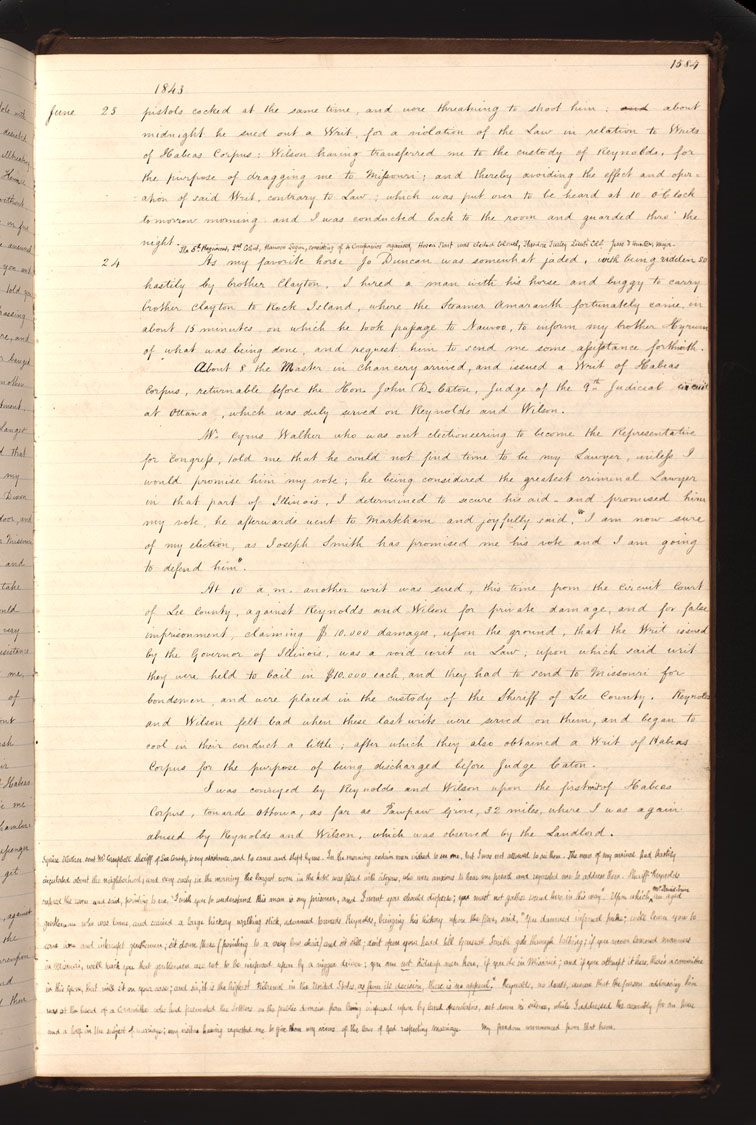 1584
1843
June 23 pistols cocked at the same time, and were threatning to shoot him; and about
midnight he sued out a Writ, for a violation of the Law in relation to Writs
of Habeas Corpus: Wilson having transferred me to the custody of Reynolds, for
the purpose of dragging me to Missouri; and thereby avoiding the effect and oper-
ation of said Writ, contrary to Law; which was put over to be heard at 10 o'clock
tomorrow morning. and I was conducted back to the room and guarded thro' the
night.
The 5th Regiment, 2nd Cohort, Nauvoo Legion, consisting of 4 Companies organized, Hosea Stout was elected Colonel, Theodore Turley Lieut. Col. Jesse D Hunter Major
24 As my favorite horse Jo Duncan was somewhat jaded, with being ridden so
hastily by brother Clayton, I hired a man with his horse and buggy to carry
brother Clayton to Rock Island, where the Steamer Amaranth fortunately came in
about 15 minutes on which he took passage to Nauvoo, to inform my brother Hyrum
of what was being done, and request him to send me some assistance forthwith.
About 8 the Master in chancery arrived, and issued a Writ of Habeas
Corpus, returnable before the Hon. John D. Caton, Judge of the 9th Judicial circuit
at Ottawa, which was duly served on Reynolds and Wilson.
Mr. Cyrus Walker who was out electioneering to become the Representative
for Congress, told me that he could not find time to be my Lawyer, unless I
would promise him my vote; he being considered the greatest criminal Lawyer
in that part of Illinois, I determined to secure his aid - and promised him
my vote, he afterwards went to Markham and joyfully said, "I am now sure
of my election, as Joseph Smith has promised me his vote and I am going
to defend him".
At 10 a.m. another writ was sued, this time from the Circuit Court
of Lee County, against Reynolds and Wilson for private damage, and for false
imprisonment, claiming $10.000 damages, upon the ground, that the Writ issued
by the Governor of Illinois, was a void writ in Law; upon which said writ
they were held to bail in $10.000 each, and they had to send to Missouri for
bondsmen, and were placed in the custody of the Sheriff of Lee County. Reynolds
and Wilson felt bad when these last writs were served on them, and began to
cool in their conduct a little; after which they also obtained a Writ of Habeas
Corpus for the purpose of being discharged before Judge Caton.
I was conveyed by Reynolds and Wilson upon the first writ of Habeas
Corpus, towards Ottowa, as far as Pawpaw Grove, 32 miles, where I was again
abused by Reynolds and Wilson, which was observed by the Landlord.
Squire Walker sent Mr Campbell Sheriff of Lee County, to my assistance, and he came and slept by me. In the morning certain men wished to see me, but I was not allowed to see them. The news of my arrival had hastily
circulated about the neighborhood; and very early in the morning the largest room in the hotel was filled with citizens, who were anxious to hear me preach and requested me to address them. Sheriff Reynolds
entered the room and said, pointing to me, "I wish you to understand this man is my prisoner, and I want you should disperse; you must not gather round here in this way." Upon which Mr David Town an aged
gentleman who was lame, and carried a large hickory walking stick, advanced towards Reynolds, bringing his hickory upon the floor, said, "You damned infernal puke; we'll learn you to
come here and interrupt gentlemen, sit down there (pointing to a very low chair) and sit still, don't open your head till General Smith gets through talking; if you never learned manners
in Missouri, we'll teach you that gentlemen are not to be imposed upon by a nigger driver; you can not kidnap men here, if you do in Missouri; and if you attempt it here, there's a committee
in this Grove, that will sit on your case; and sir, it is the highest tribunal in the United States, as from its decision, there is no appeal." Reynolds, no doubt, aware that the person addressing him
was at the head of a Committee who had prevented the settlers on the public domain from being imposed upon by land speculators, sat down in silence, while I addressed the assembly for an hour
and a half on the subject of marriage; my visitors having requested me to give them my views of the law of God respecting marriage. My freedom commenced from that hour.